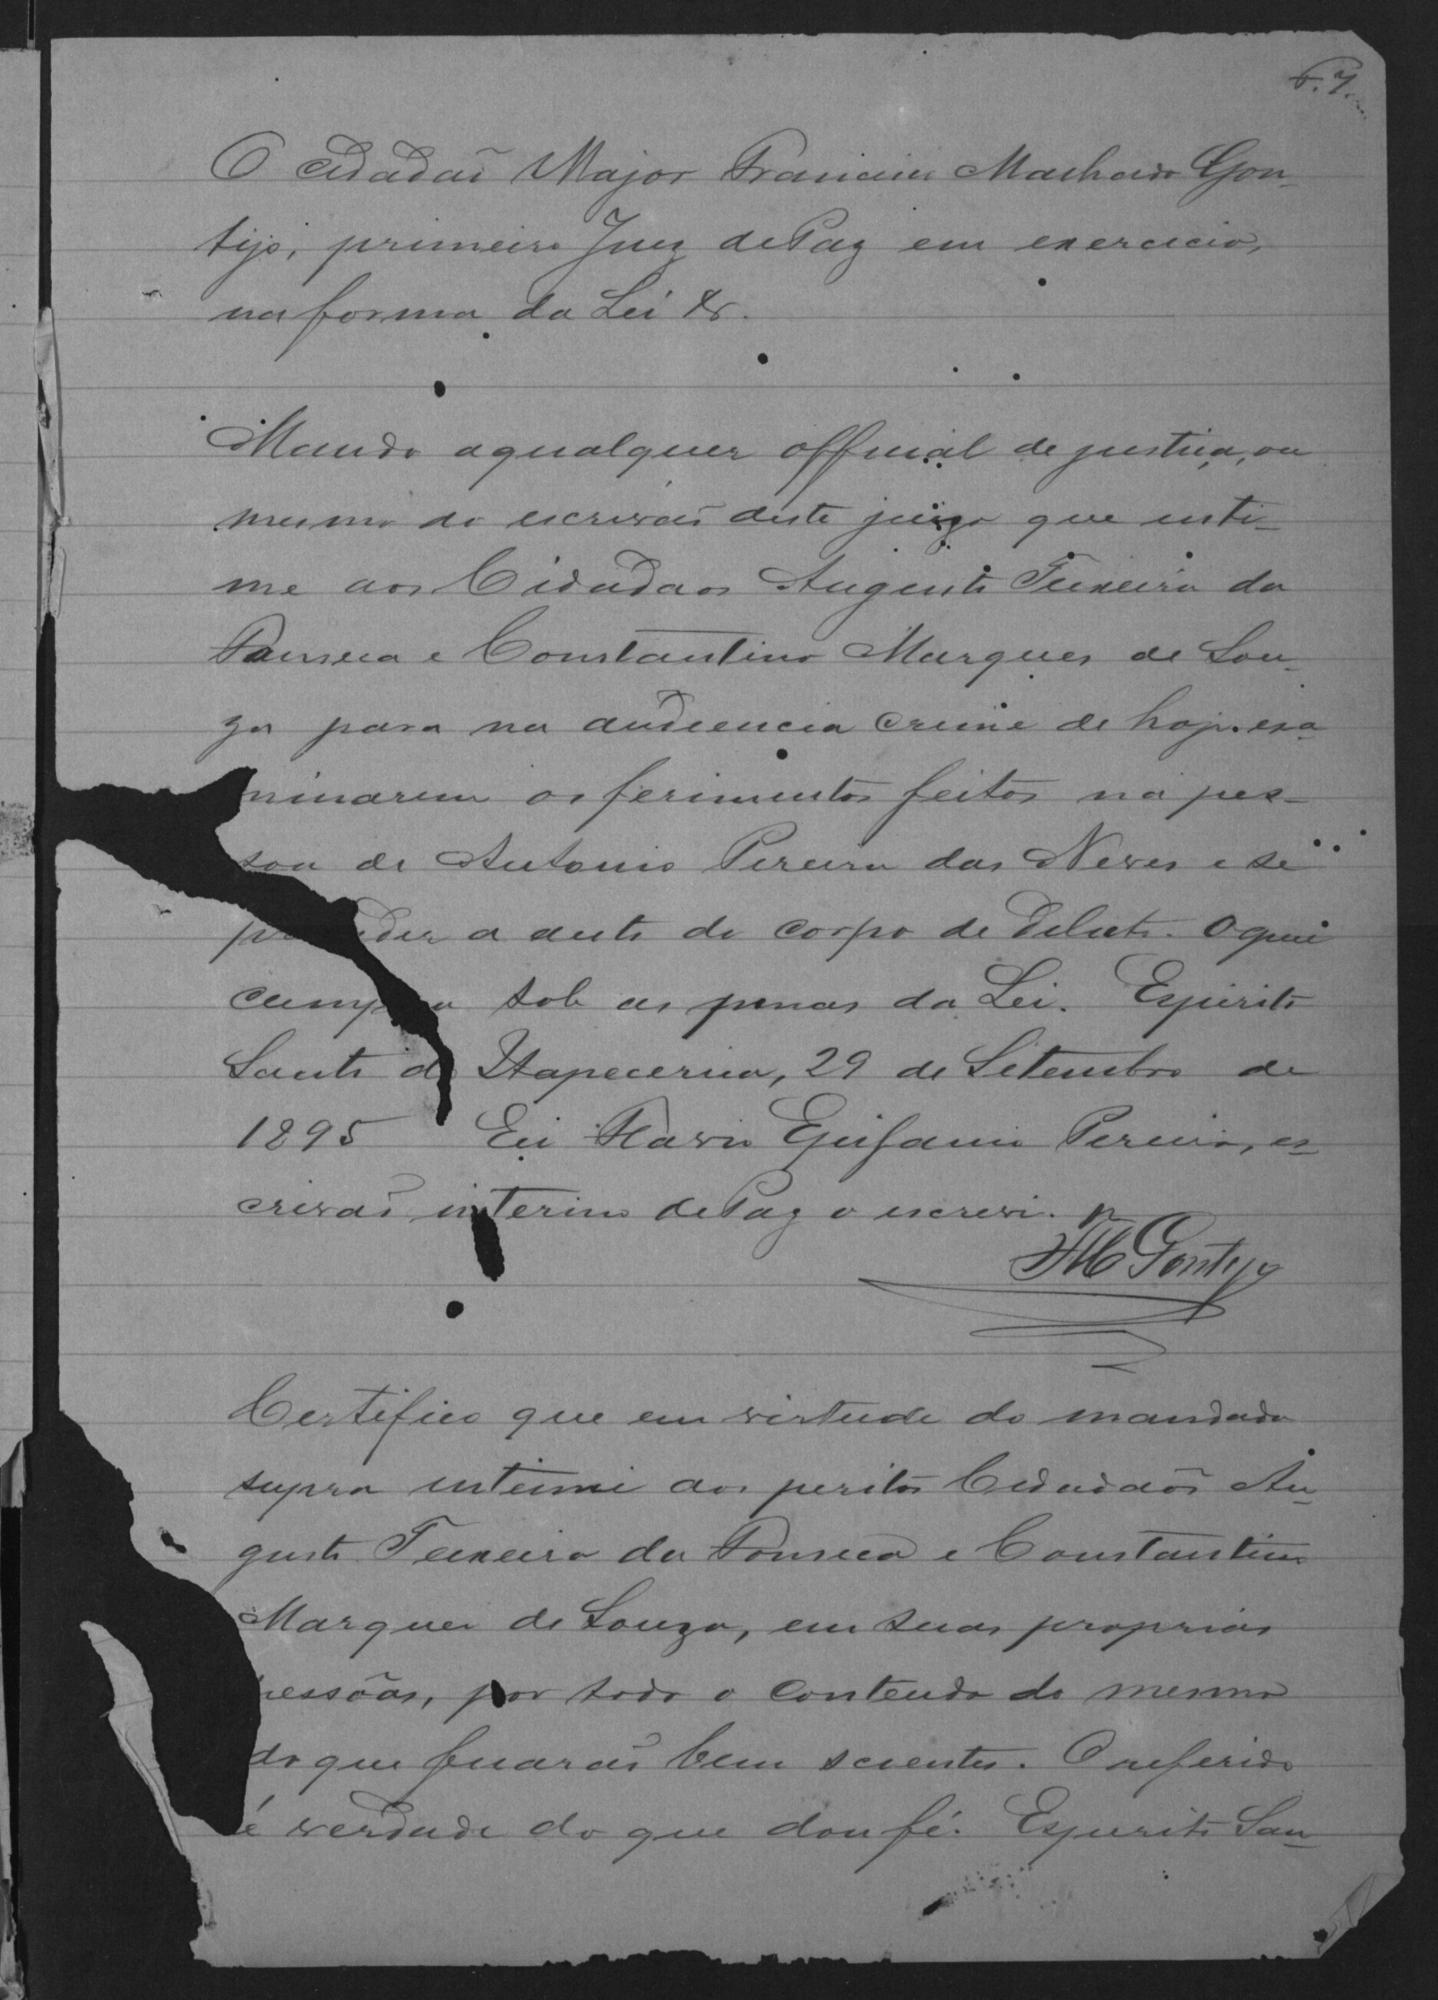 F. 7.
O cidadaõ Major Francisco Machado Gon-
tijo, primeiro Juiz de Paz em exercicio,
na forma da Lei &.
Mando a qualquer official de justiça, ou
mesmo do escrivaõ deste juizo que inti-
me aos Cidadaos Augusto Teixeira da
Fonseca e Constantino Marques de Sou-
za para na audiencia crime de hoje exa
minarem os ferimentos feitos na pes-
soa de Antonio Pereira das Neves e se
p der a auto de corpo de delicto. O que
cump a sob as penas da Lei. Espirito
Santo d Itapecerica, 29 de Setembro de
1895 Eu Flavio Epifanio Pereira, es-
crivaõ interino de Paz o escrevi.
FM Gontijo
Certifico que em virtude do mandado
supra intimei aos peritos Cidadaõs Au-
gusto Teixeira da Fonseca e Constantino
Marques de Souza, em suas proprias
pessõas, por todo o contendo do mesmo
do que ficaraõ bem scientes. O referido
é verdade do que dou fé. Espirito San-